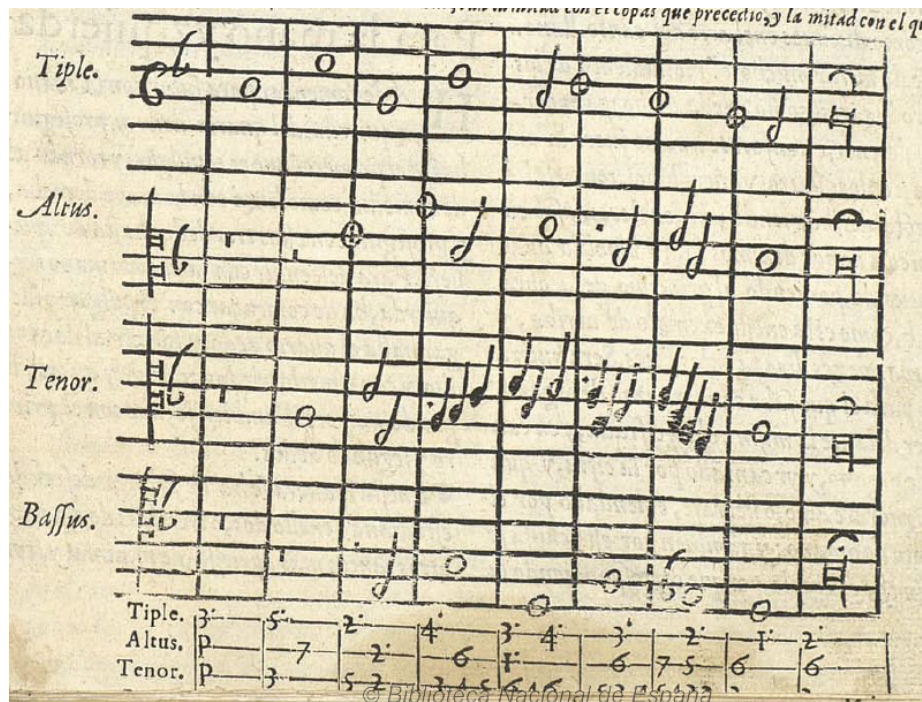 la mitad con el copas que precedio, y la mitad con el
Tiple.
Altus.
Tenor.
Bassus.
Tiple. 3· 5· 2· 4· 3· 4· 3· 2· 1· 2·
Altus. p 7 2· 6 1· 6 7 5 6 6
Tenor. p 3
© Biblioteca Nacional de España